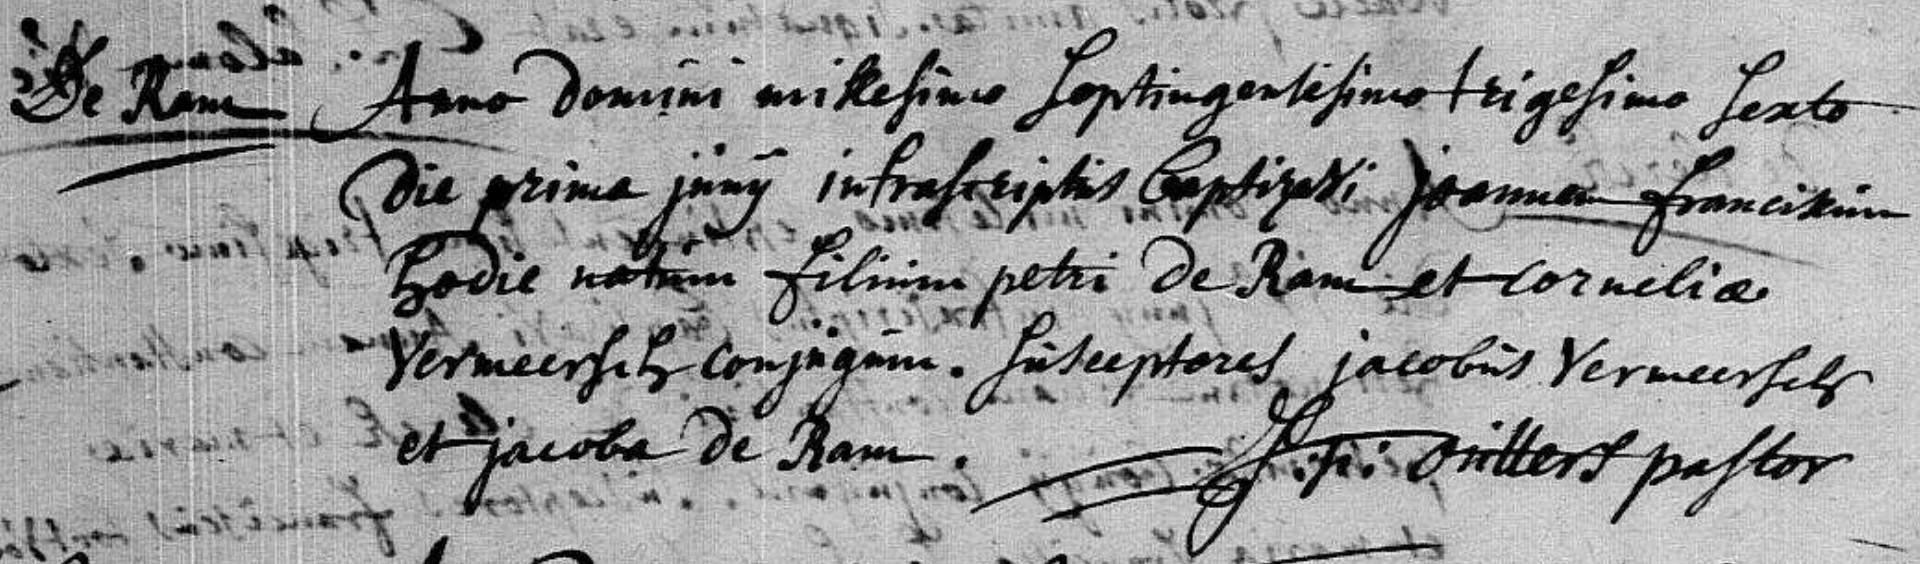 De Ram Anno Domini millesimo septingentesimo trigesimo sexto
die prima junij infrascriptus baptizavi joannem franciscum
hodie natum filium petri de Ram et corneliæ
Vermeersch conjugum. susceptores jacobus Vermeersch
et jacoba de Ram. pastor